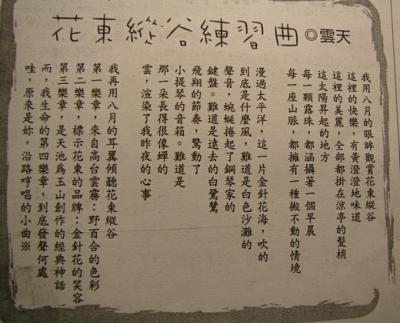 花東縱谷練習曲 ◎雲天
我用八月的眼眸觀賞花東縱谷
這裡的快樂，有黃澄澄地味道
這裡的美麗，全部都掛在涼亭的髮梢
這太陽昇起的地方
每一顆露珠，都涵攝著一個早晨
每一座山脈，都擁有一種搬不動的情境
漫過太平洋，這一片金針花海，吹的
到底是什麼風，難道是白色沙灘的
聲音，蜿蜒捲起了鋼琴家的
鍵盤。難道是遠去的白鷺鷥
飛翔的節奏，驚動了
小提琴的音箱。難道是
那一朵長得很像蟬的
雲，渲染了我昨夜的心事
我再用八月的耳翼傾聽花東縱谷
第一樂章，來自高台雲霧：野百合的色彩
第二樂章，標示花東的品牌：金針花的笑容
第三樂章，是天池為玉山創作的經典神話
而，我生命的第四樂章，到底發聲何處
哇，原來是妳，沿路哼唱的小曲※